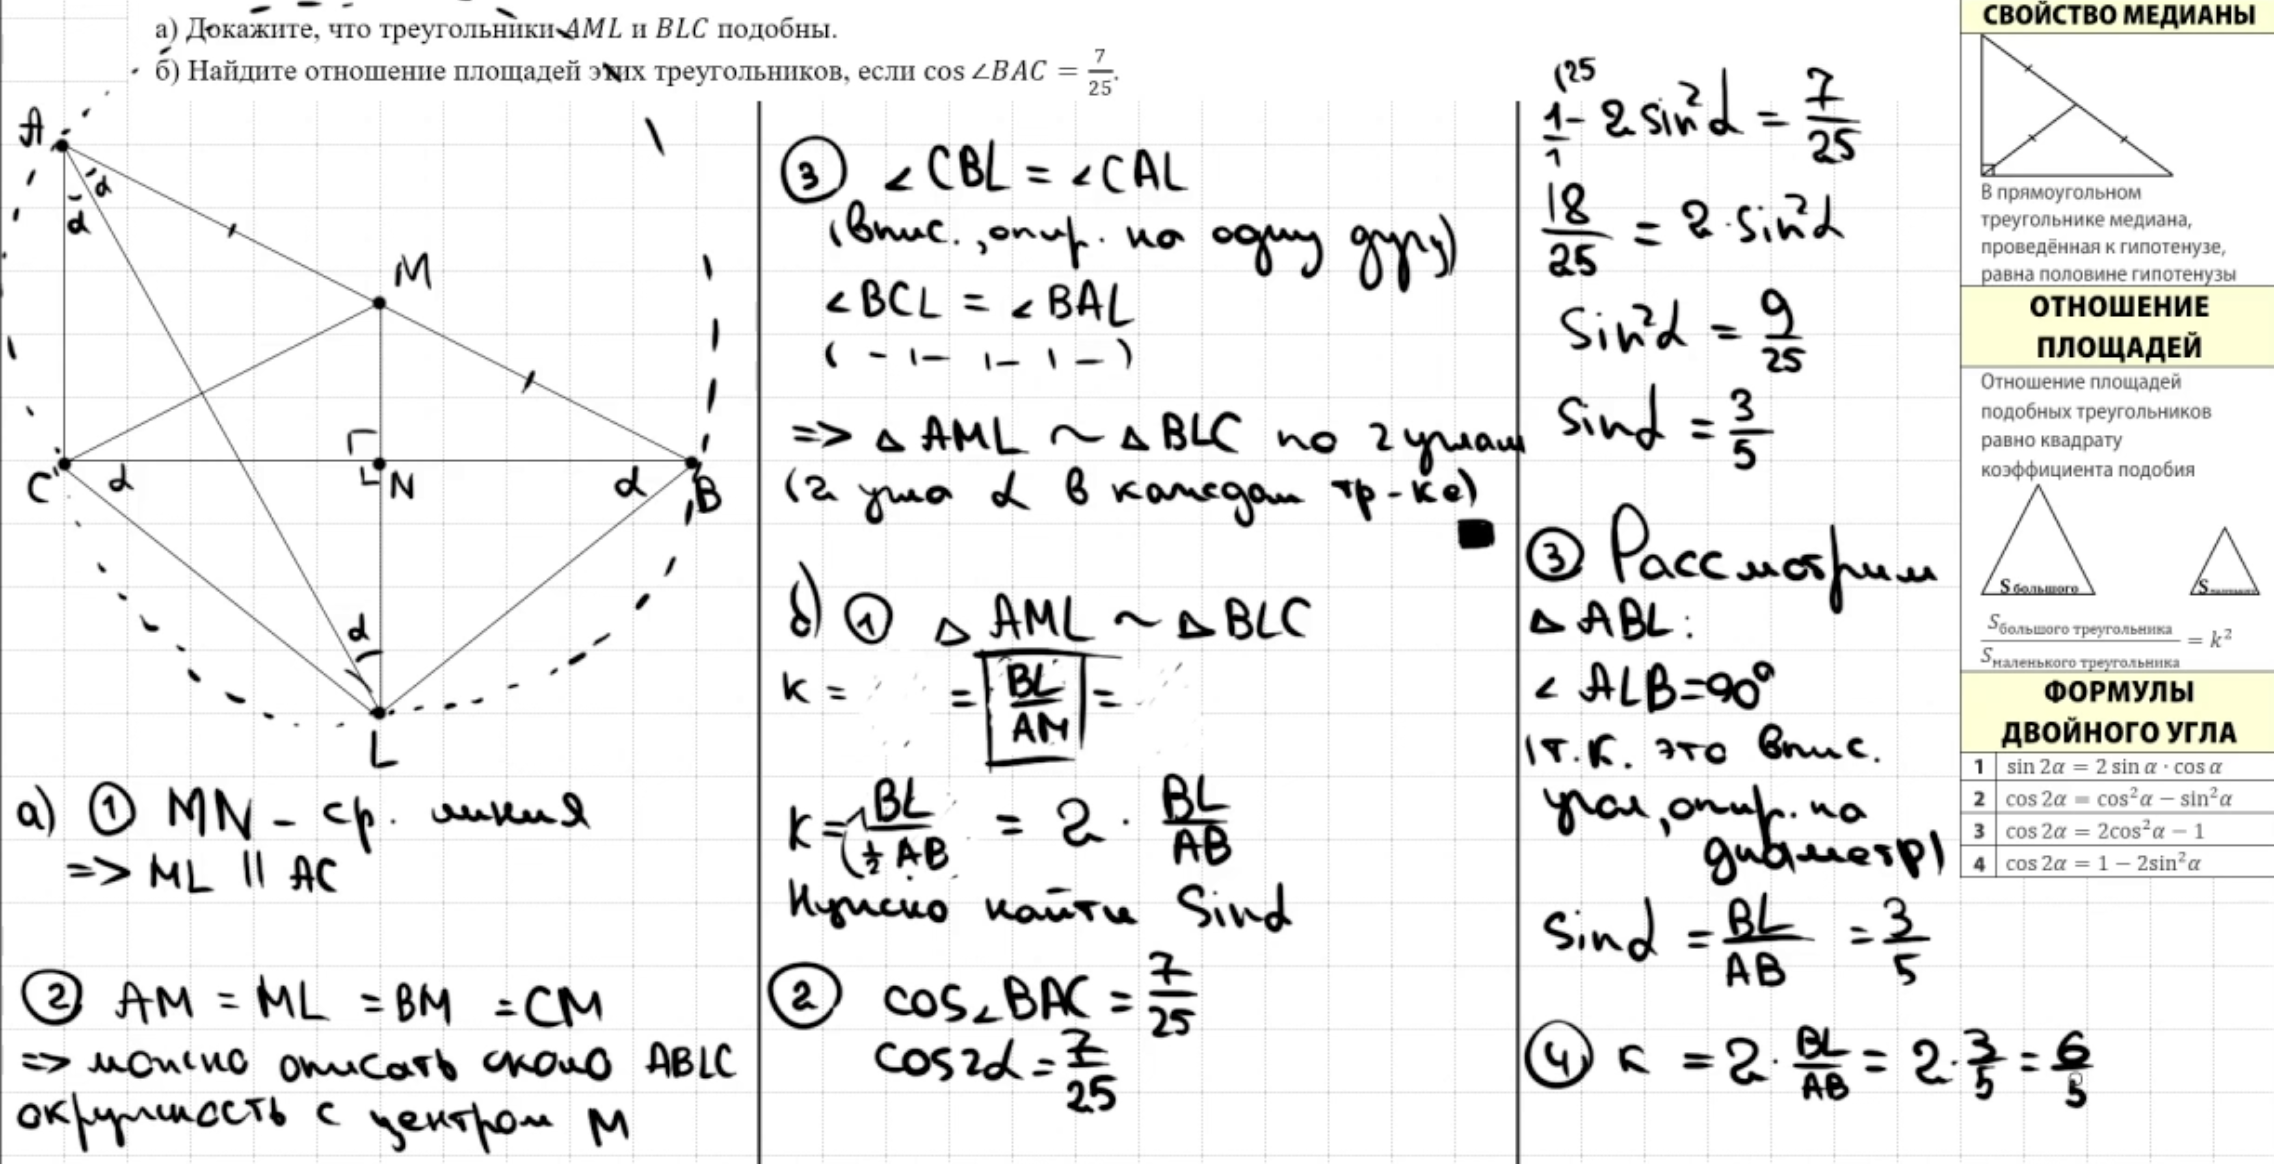 а) Докажите, что треугольники AML и BLC подобны.
б) Найдите отношение площадей этих треугольников, если cos ∠BAC = 7/25.
A
α
α
M
C
α
N
α
B
α
L
а) ① MN - ср. линия
=> ML || AC
② AM = ML = BM = CM
=> можно описать около ABLC
окружность с центром M
③ ∠CBL = ∠CAL
(впис., опир. на одну дугу)
∠BCL = ∠BAL
( - ı - ı - ı - )
=> △ AML ~ △ BLC по 2 углам
(2 угла α в каждом тр-ке)
б) ① △ AML ~ △ BLC
к = = BL/AM =
к = BL/(½ AB) = 2 · BL/AB
Нужно найти sinα
② cos∠BAC = 7/25
cos2α = 7/25
(25
1/1 - 2 sin²α = 7/25
18/25 = 2·sin²α
sin²α = 9/25
sinα = 3/5
③ Рассмотрим
△ ABL:
∠ ALB=90°
(т.к. это впис.
угол, опир. на
диаметр)
sinα = BL/AB = 3/5
④ к = 2 · BL/AB = 2 · 3/5 = 6/5
СВОЙСТВО МЕДИАНЫ
В прямоугольном
треугольнике медиана,
проведённая к гипотенузе,
равна половине гипотенузы
ОТНОШЕНИЕ
ПЛОЩАДЕЙ
Отношение площадей
подобных треугольников
равно квадрату
коэффициента подобия
S большого
S маленького
S большого треугольника / S маленького треугольника = k²
ФОРМУЛЫ
ДВОЙНОГО УГЛА
1 sin 2α = 2 sin α · cos α
2 cos 2α = cos²α − sin²α
3 cos 2α = 2cos²α − 1
4 cos 2α = 1 − 2sin²α